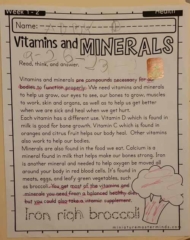 WEEK 1-2
Name:
Vitamins and MINERALS
Read, think, and answer:
Vitamins and minerals are compounds necessary for
bodies to function properly. We need vitamins and minerals
to help us grow, our eyes to see, our bones to grow, muscles
to work, skin and organs, as well as to help us get better
when we are sick and heal when we get hurt.
Each vitamin has a different use. Vitamin D which is found in
milk is good for bone growth. Vitamin C which is found in
oranges and citrus fruit helps your body heal. Other vitamins
also work to help our bodies.
Minerals are also found in the food we eat. Calcium is a
mineral found in milk that helps make our bones strong. Iron
is another mineral and needed to help oxygen be moved all
around your body in red blood cells. It's found in
meats, eggs, and leafy green vegetables, such
as broccoli. You get most of the vitamins and
minerals you need from a balanced healthy diet
but you could also take vitamin supplement.
Iron rich broccoli